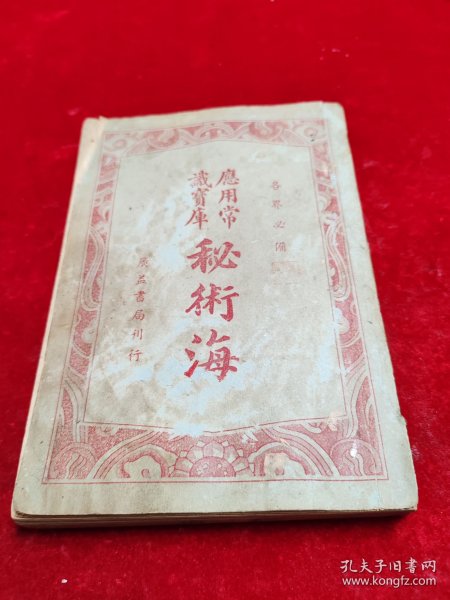 各界必備
應用常
識寶庫
秘術海
廣益書局刊行
孔夫子旧书网
www.kongfz.com